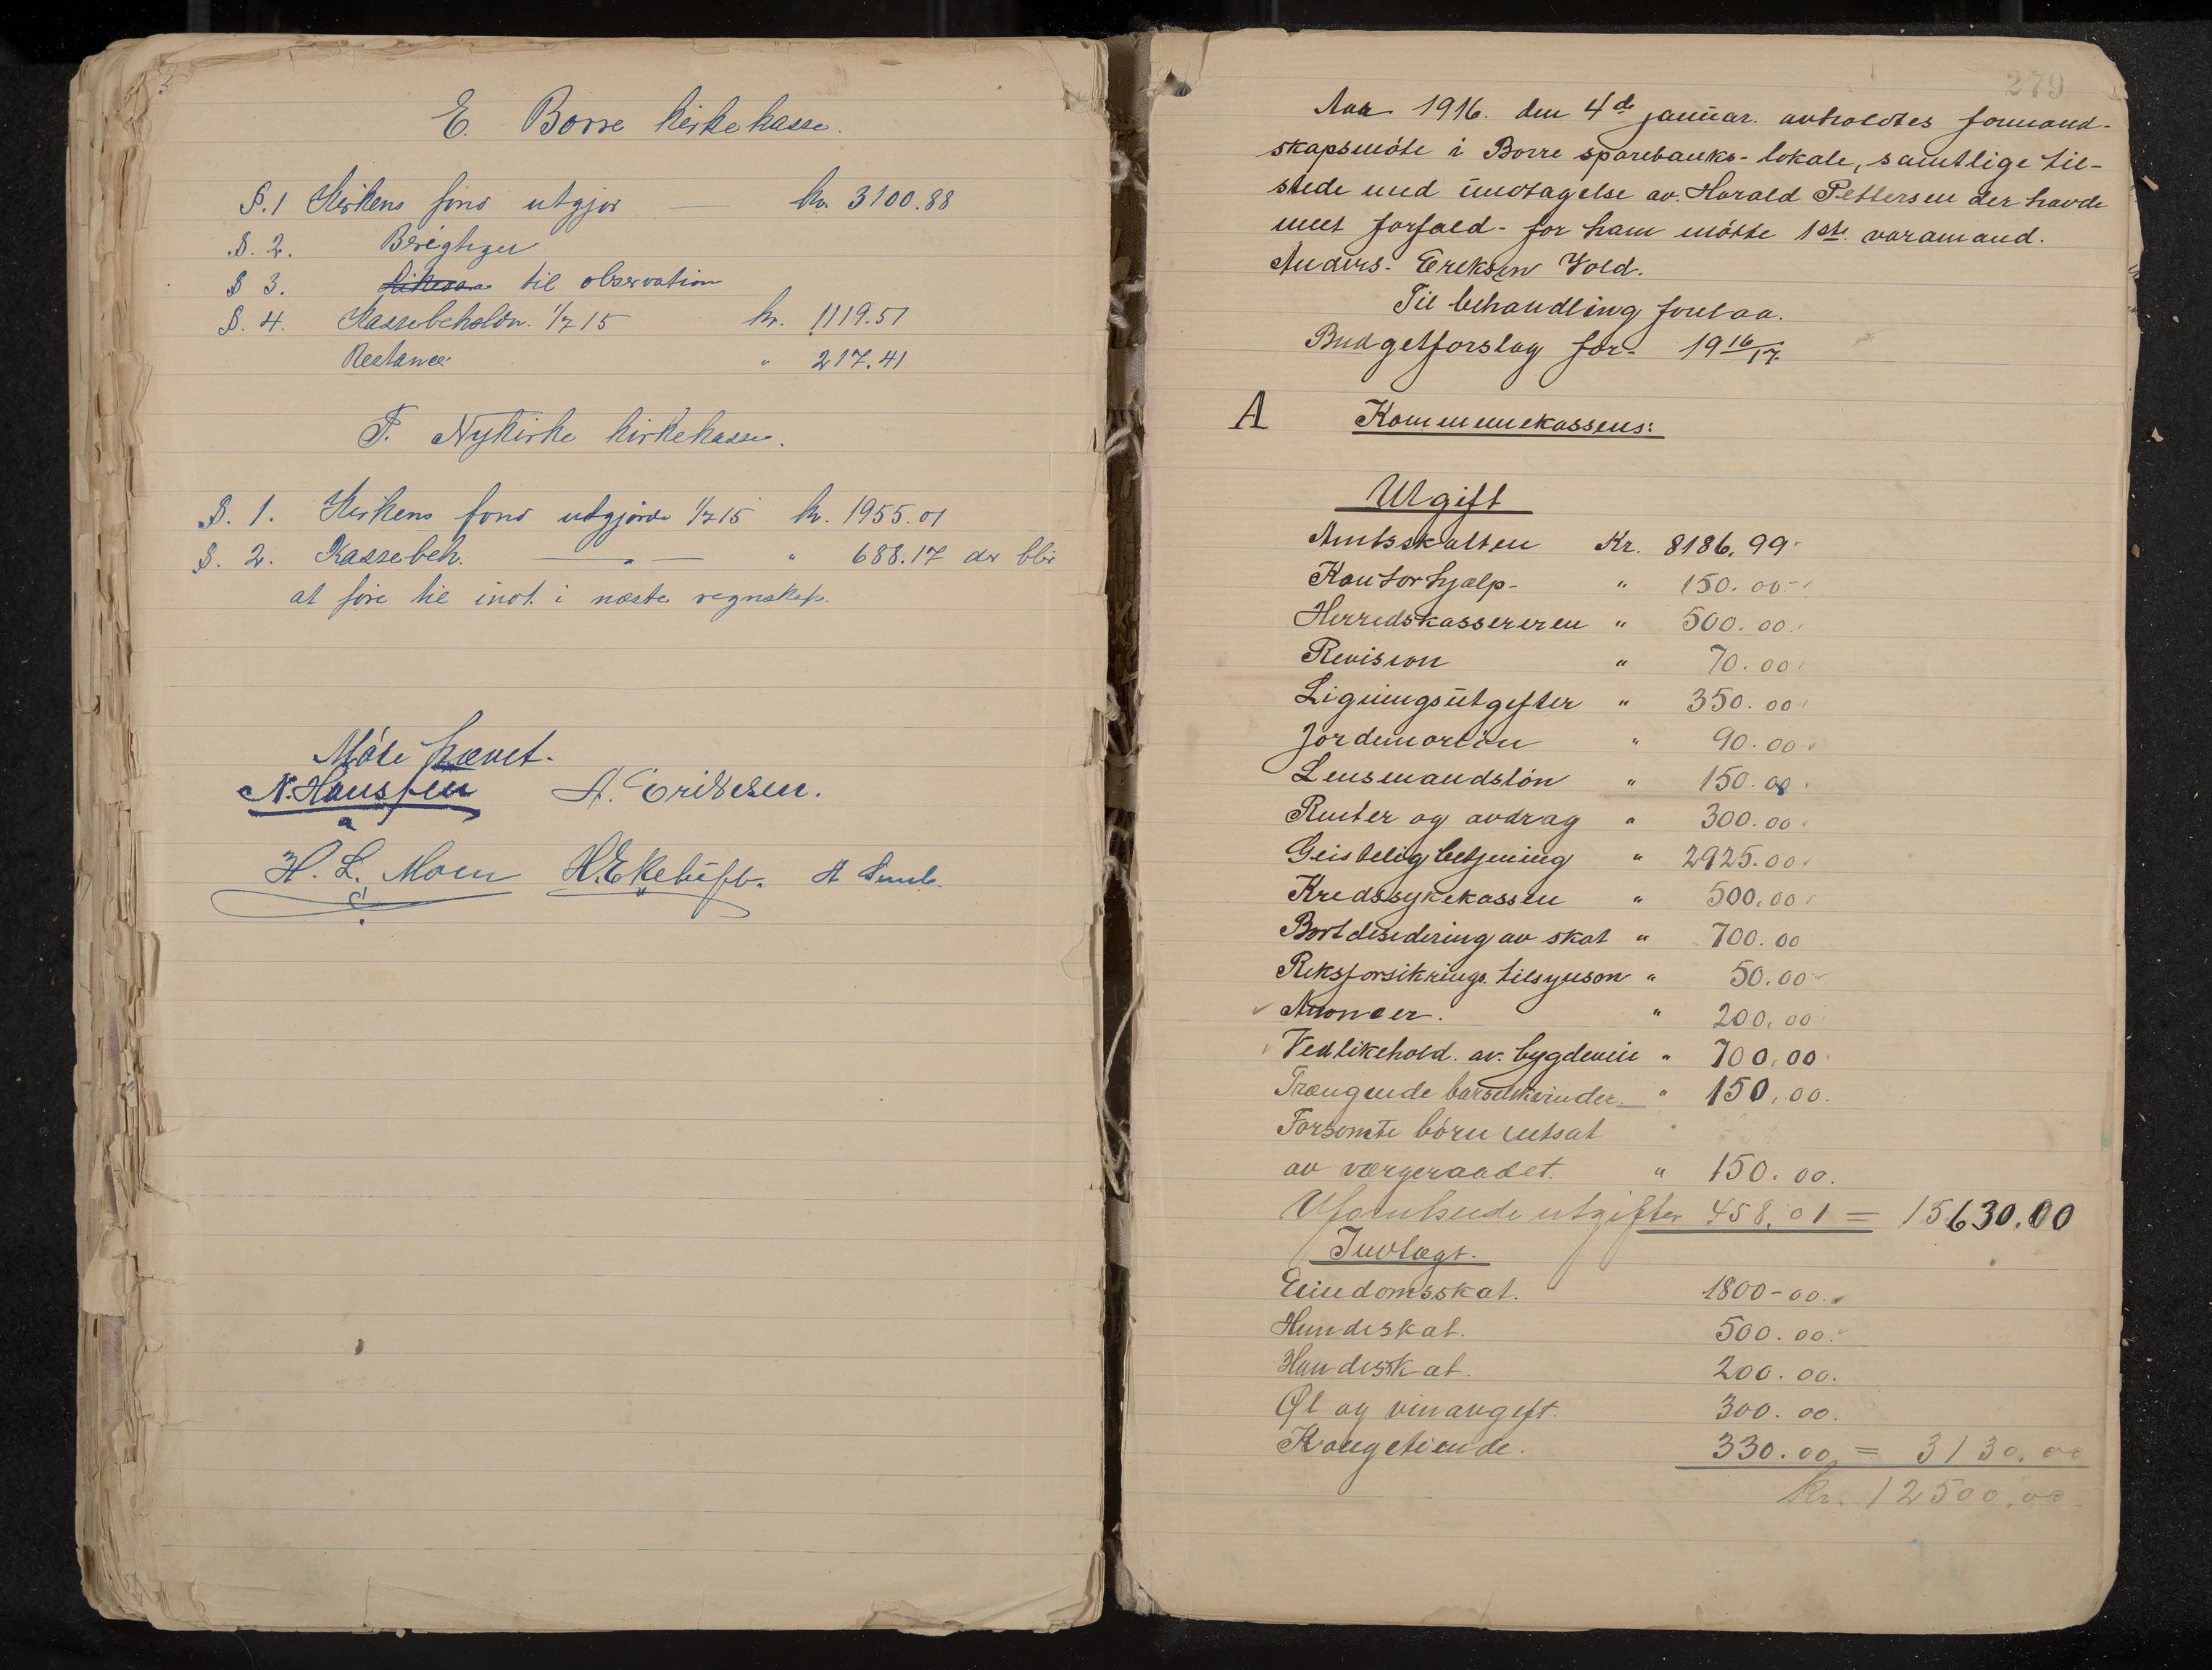 E. Borre kirkekasse.
§. 1 Kirkens fond utgjør — kr. 3100.88
§. 2. Berigtiges
§ 3. til observation
§. 4. Kassebeholdn. 1/7 15 kr. 1119.51
Restance " 217.41
F. Nykirke kirkekasse.
§. 1. Kirkens fond utgjorde 1/7 15 kr. 1955.01
§. 2. Kassebeh. — " — " 688.17 der blir
at føre til indt. i næste regnskap.
Møte hævet.
N. Hanssen A. Eriksen.
H. L. Moen
279
Aar 1916. den 4de januar. avholdtes formand-
skapsmøte i Borre sparebanks-lokale, samtlige til-
stede med undtagelse av Harald Pettersen der havde
met forfald - for ham møtte 1ste varamand.
Anders. Eriksen Vold.
Til behandling forelaa.
Budgetforslag for- 1916/17
A Kommunekassens:
Utgift
Amtsskatten Kr. 8186,99
Kontorhjælp- " 150.00
Herredskassereren " 500.00
Revision " 70.00
Ligningsutgifter " 350.00
Jordemorløn " 90.00
Lensmandsløn " 150.00
Renter og avdrag " 300.00
Geistelig betjening " 2925.00
Kredssykekassen " 500.00
Bortdesidering av skat " 700.00
Riksforsikrings. tilsynsm " 50.00
Anoncer. " 200,00
Vedlikehold. av. bygdeveie " 700,00
Trængende barselkvinder. " 150,00.
Forsømte børn utsat
av vergeraadet. " 150.00.
Uforutseede utgifter 458,01 = 15630.00
Indtægt.
Eiendomsskat. 1800-00.
Hundeskat. 500.00.
Handesskat. 200.00.
Øl og vinavgift. 300.00.
Kongetiende. 330.00 = 3130.00
Kr. 12500,00